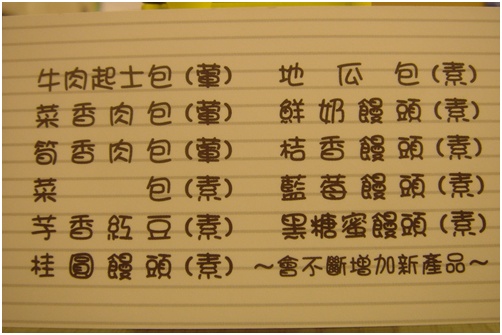 牛肉起士包(葷)
菜香肉包(葷)
筍香肉包(葷)
菜包(素)
芋香紅豆(素)
桂圓饅頭(素)
地瓜包(素)
鮮奶饅頭(素)
桔香饅頭(素)
藍莓饅頭(素)
黑糖蜜饅頭(素)
～會不斷增加新產品～